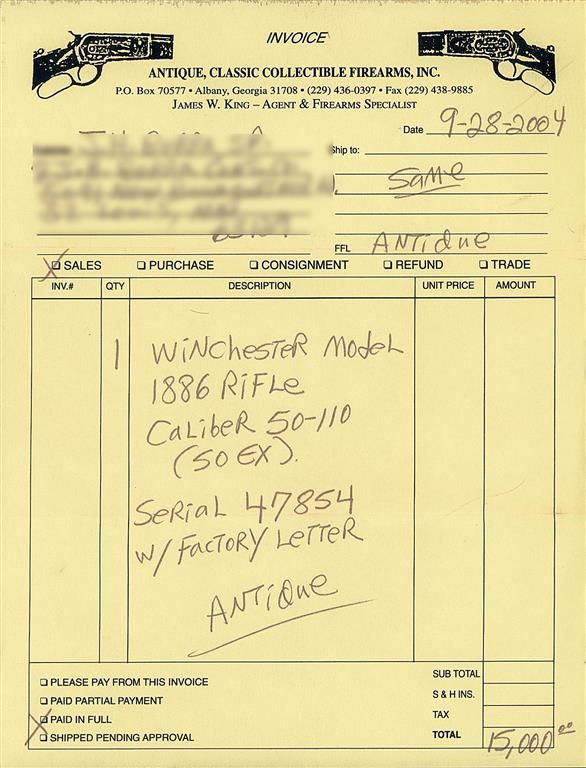 INVOICE
ANTIQUE, CLASSIC COLLECTIBLE FIREARMS, INC.
P.O. Box 70577 • Albany, Georgia 31708 • (229) 436-0397 • Fax (229) 438-9885
JAMES W. KING – AGENT & FIREARMS SPECIALIST
Date 9-28-2004
Ship to:
SAME
FFL ANTIQUE
SALES PURCHASE CONSIGNMENT REFUND TRADE
INV.# QTY DESCRIPTION UNIT PRICE AMOUNT
1 WINCHESTER MODEL
1886 RIFLE
CALIBER 50-110
(50 EX).
SERIAL 47854
W/ FACTORY LETTER
ANTIQUE
PLEASE PAY FROM THIS INVOICE
PAID PARTIAL PAYMENT
PAID IN FULL
SHIPPED PENDING APPROVAL
SUB TOTAL
S & H INS.
TAX
TOTAL 15,000.00